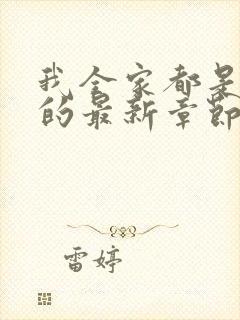 我全家都是
的最新章节
雷婷